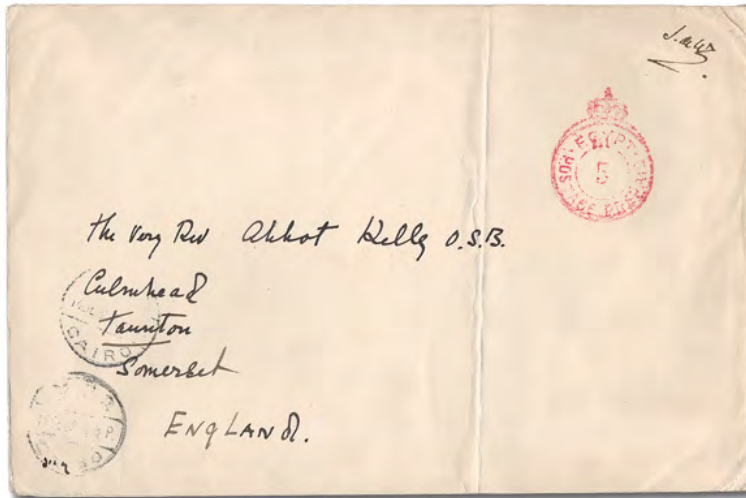 EGYPT
5
POSTAGE PREPAID
The Very Rev Abbot Kelly O.S.B.
Culmhead
Taunton
Somerset
ENGLAND.
CAIRO